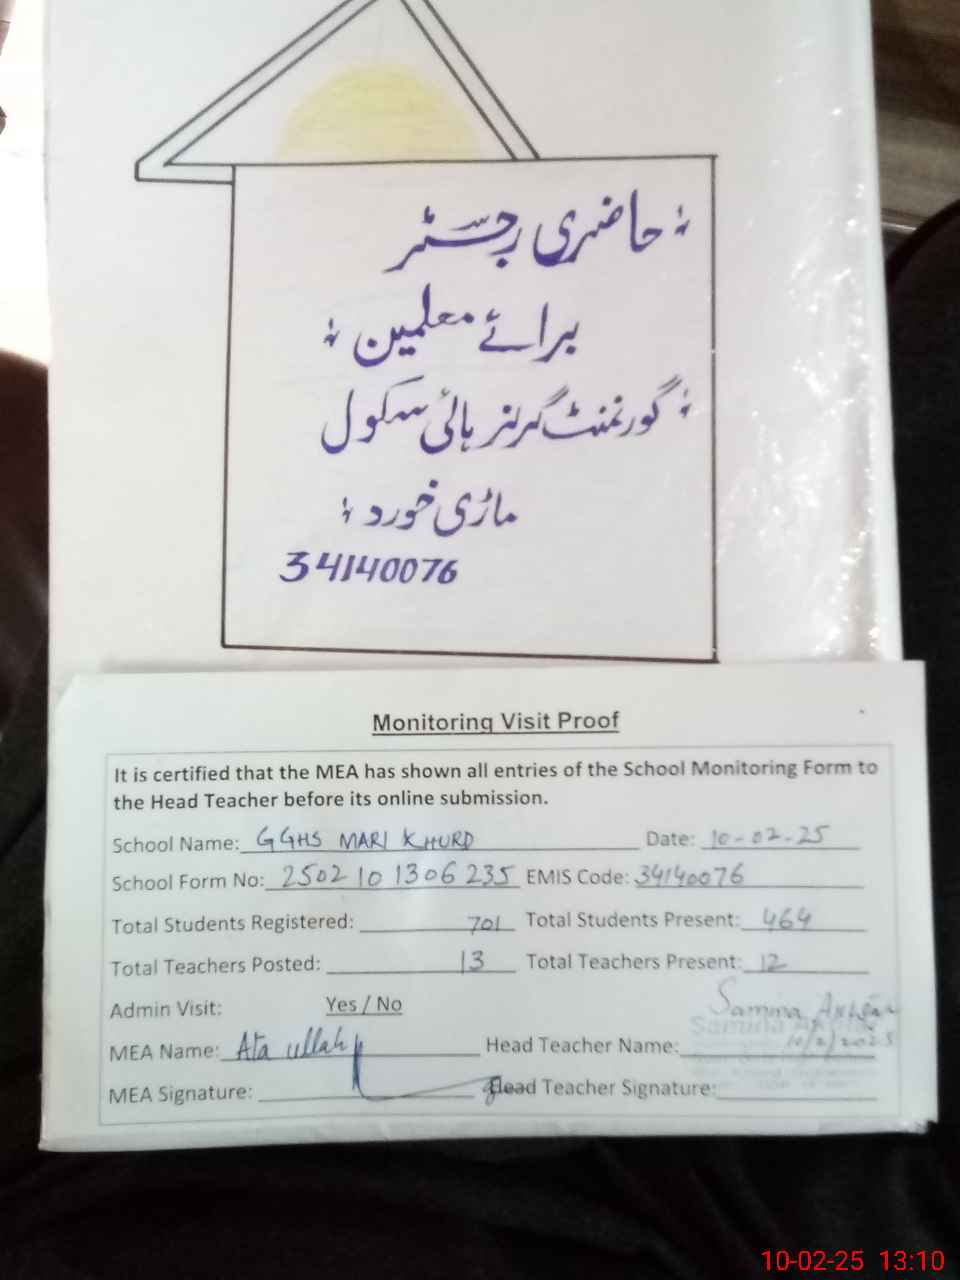 حاضری رجسٹر
برائے معلمین
گورنمنٹ گرلز ہائی سکول
ماڑی خورد
34140076
Monitoring Visit Proof
It is certified that the MEA has shown all entries of the School Monitoring Form to
the Head Teacher before its online submission.
School Name: GGHS MARI KHURD Date: 10-02-25
School Form No: 2502 10 1306 235 EMIS Code: 34140076
Total Students Registered: 701 Total Students Present: 464
Total Teachers Posted: 13 Total Teachers Present: 12
Admin Visit: Yes / No
Samina Akhtar
MEA Name: Ata ullah Head Teacher Name: 10/2/2025
MEA Signature: Head Teacher Signature:
10-02-25 13:10